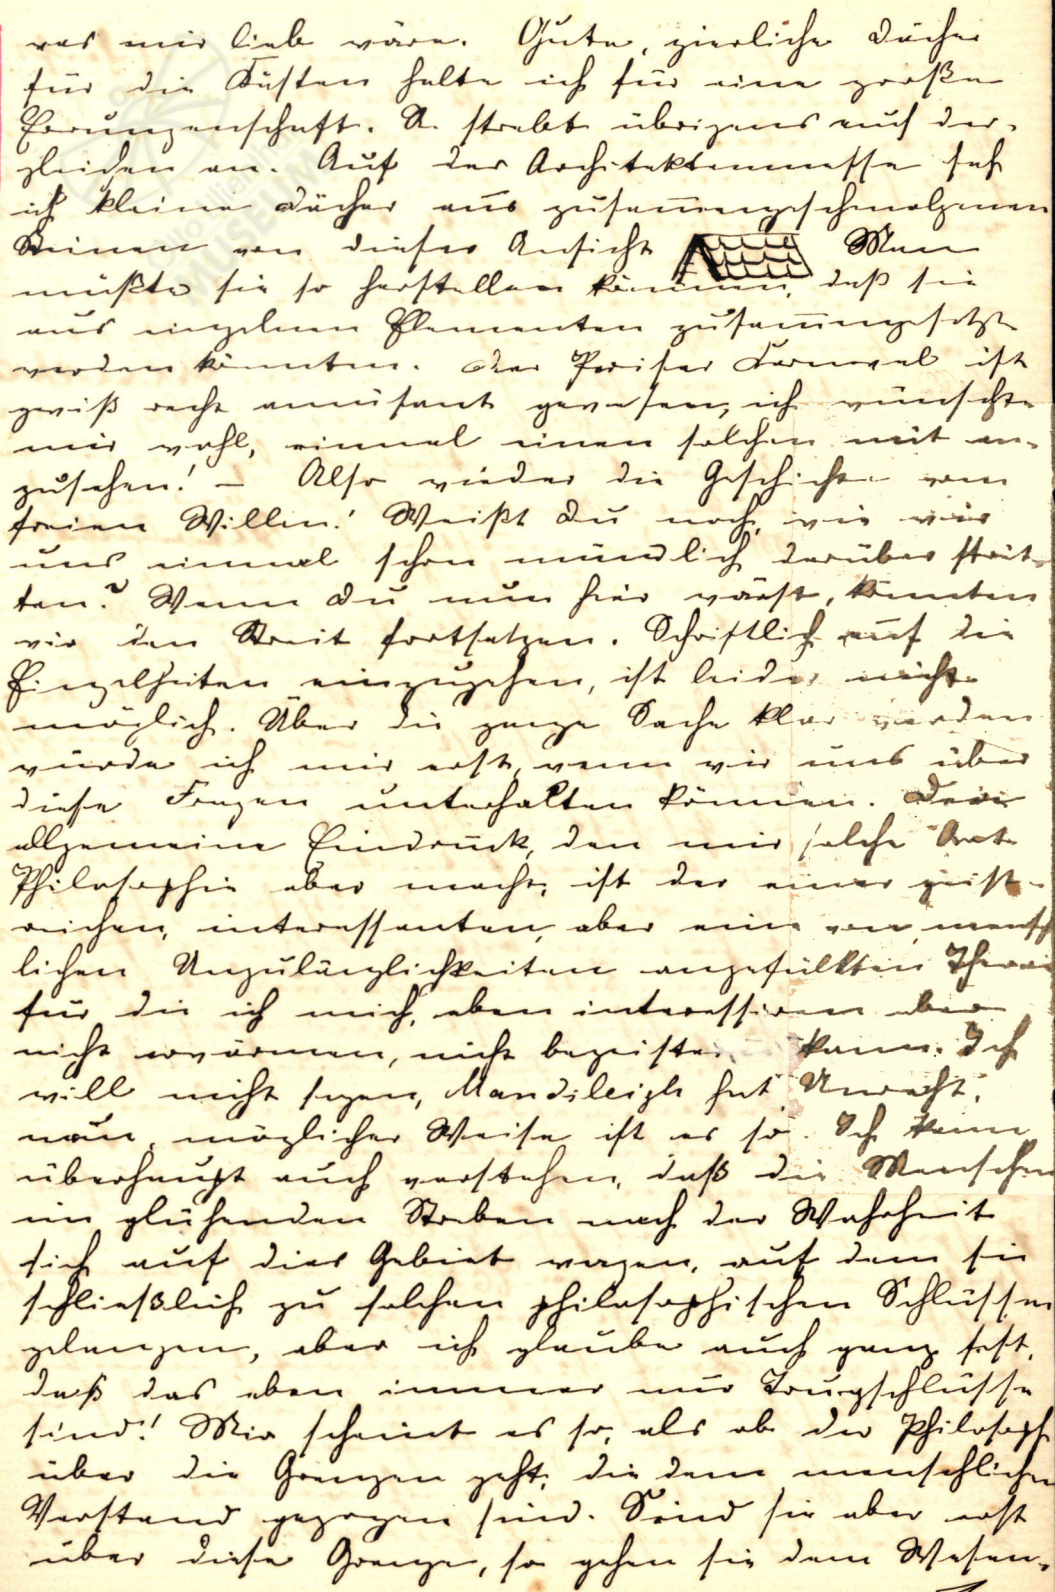 was mir lieb wäre. Gute, zierliche Dächer
für die Kästen halte ich für eine große
Errungenschaft. A. strebt übrigens auch der-
gleichen an. Auf der Architektenmesse sah
ich kleine Dächer aus zusammengeschmolzenen
Steinen von dieser Ansicht Man
müßte sie so herstellen können, daß sie
aus einzelnen Elementen zusammengesetzt
werden könnten. Der Pariser Karneval ist
gewiß recht amüsant gewesen, ich wünschte
mir wohl, einmal einen solchen mit an-
zusehen! – Also wieder die Geschichte vom
freien Willen! Weißt Du noch, wie wir
uns einmal schon mündlich darüber strit-
ten? Wenn Du nun hier wärst, könnten
wir den Streit fortsetzen. Schriftlich auf die
Einzelheiten einzugehen, ist leider nicht
möglich. Über die ganze Sache klar werden
würde ich mir erst, wenn wir uns über
diese Fragen unterhalten können. Der
allgemeine Eindruck, den mir solche Art
Philosophie aber macht, ist der einer geist-
reichen, interessanten, aber eine von mensch
lichen Unzulänglichkeiten angefüllten Theorie
für die ich mich, eben interessieren aber
nicht erwärmen, nicht begeistern kann. Ich
will nicht sagen, hat Unrecht,
nein, möglicher Weise ist es so. Ich kann
überhaupt auch verstehen, daß die Menschen
im glühenden Streben nach der Wahrheit
sich auf dies Gebiet wagen, auf dem sie
schließlich zu solchen philosophischen Schlüssen
gelangen, aber ich glaube auch ganz fest,
daß das eben immer nur Trugschlüsse
sind! Mir scheint es so, als ob der Philosoph
über die Grenzen geht, die dem menschlichen
Verstand gezogen sind. Sind sie aber erst
über diese Grenze, so gehen sie dem Wesen-